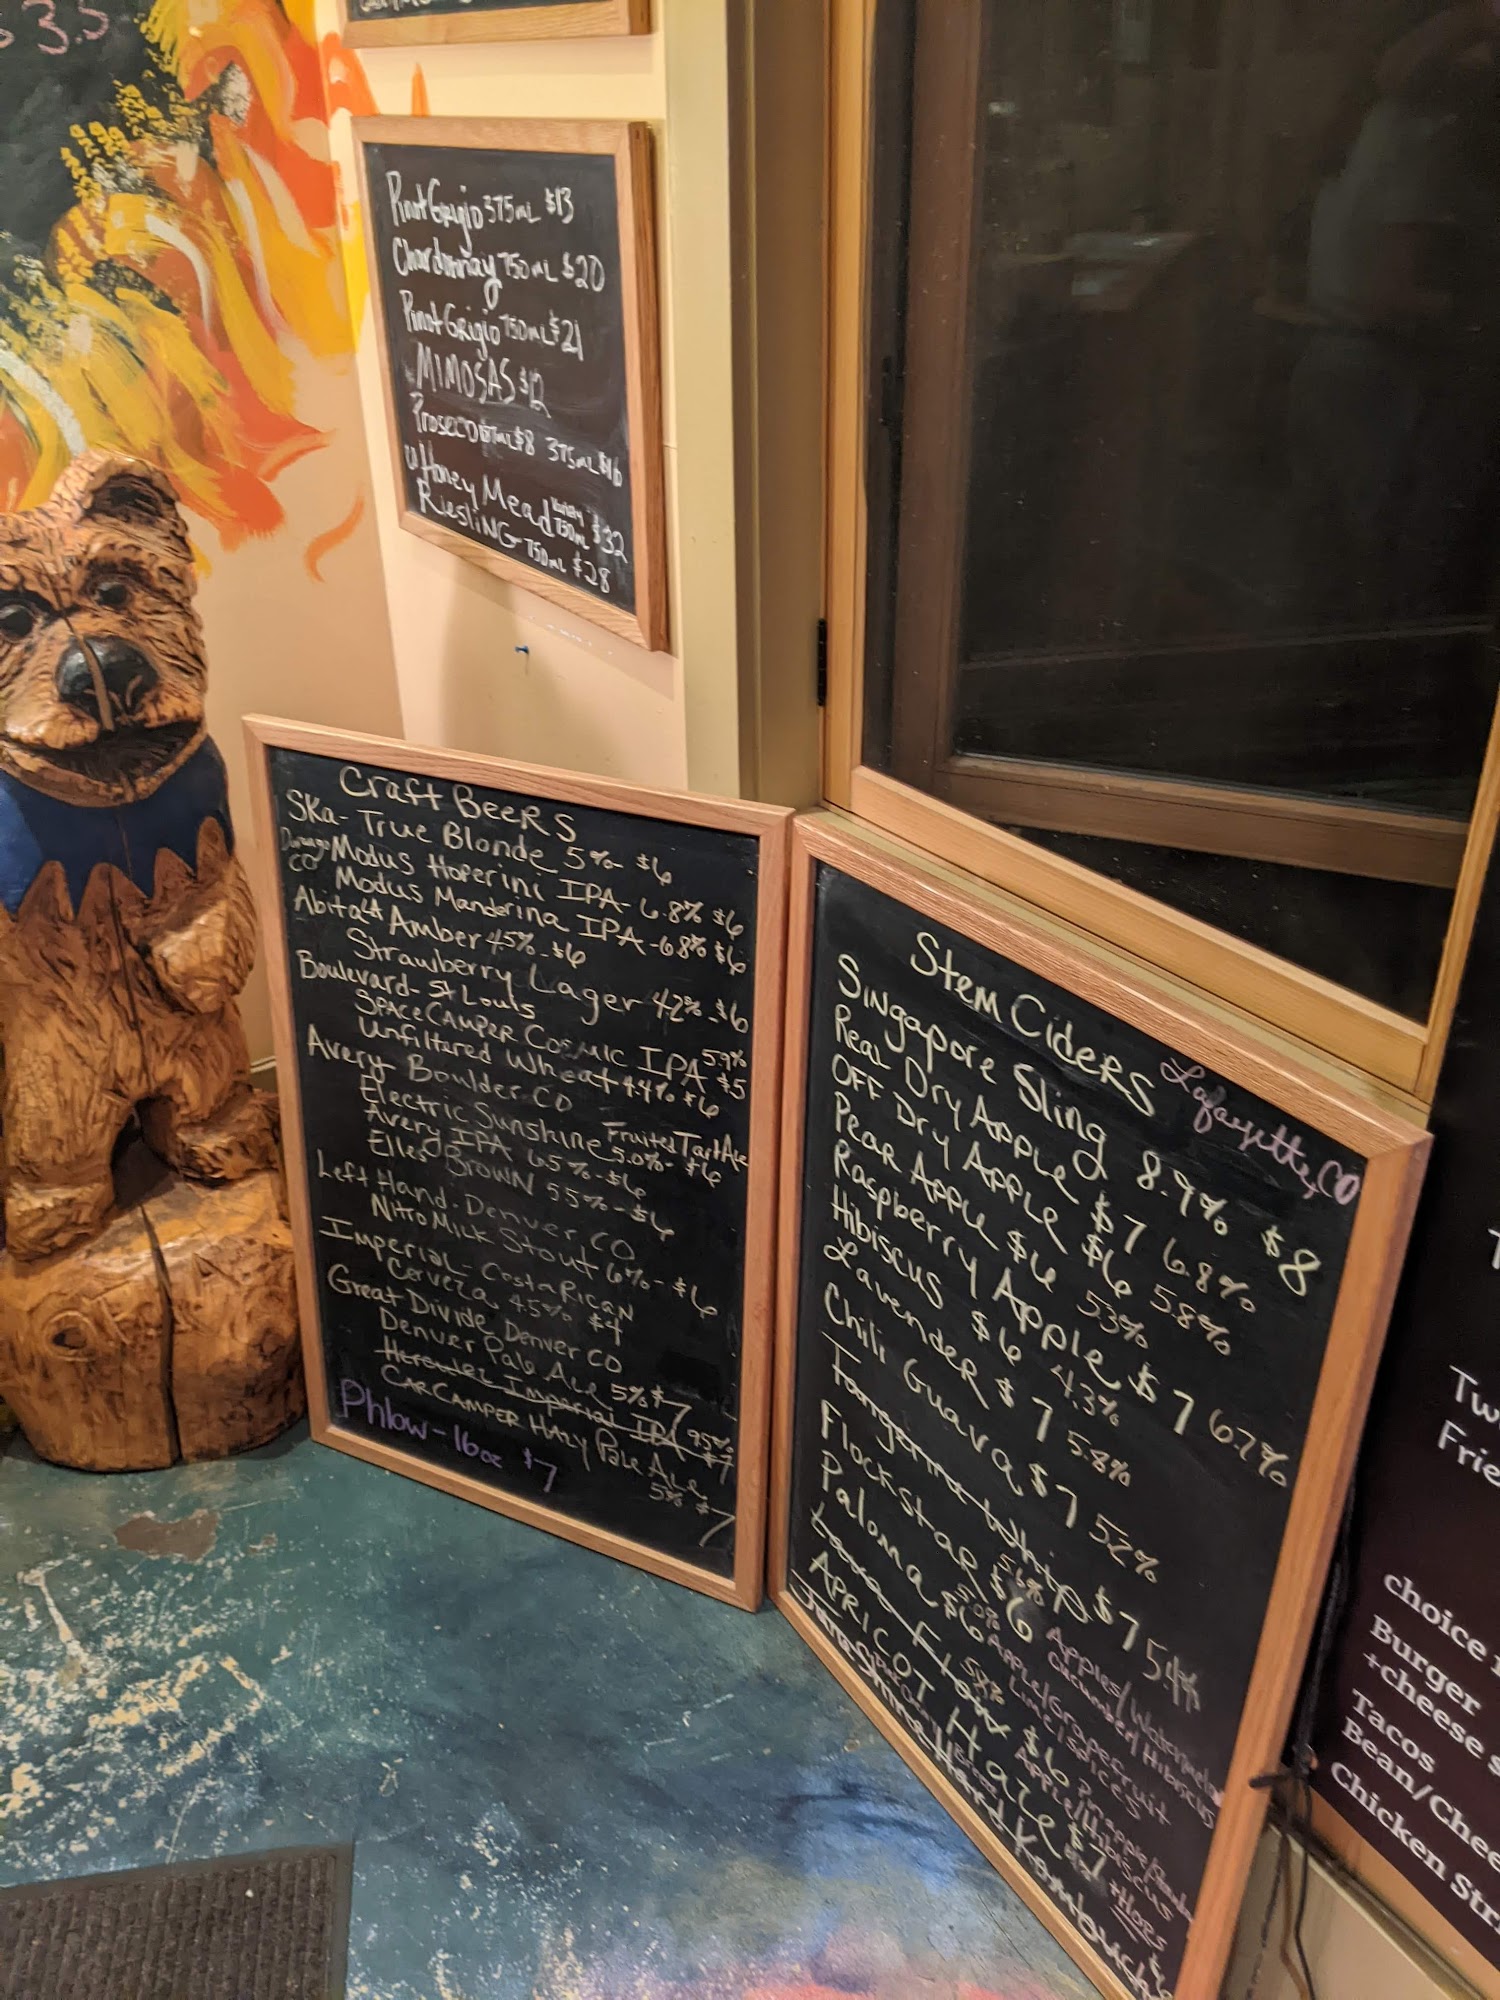 3.5
Pinot Grigio 375mL $13
Chardonnay 750mL $20
Pinot Grigio 750mL $21
MIMOSAS $12
Prosecco $8 375mL $16
Honey Mead 750mL $32
RiesliNG 750mL $28
Craft BEERS
SKa- True Blonde 5% $6
Durango CO Modus Hoperini IPA- 6.8% $6
Modus Manderina IPA- 6.8% $6
Abita LA Amber 4.5% - $6
Strawberry Lager 4.2% - $6
Boulevard- St Louis
SPACE CAMPER COSMIC IPA 5.9% $5
Unfiltered Wheat 4.4% $6
Avery Boulder CO
Electric Sunshine Fruited Tart Ale 5.0% - $6
Avery IPA 6.5% - $6
Ellies BROWN 5.5% - $6
Left Hand. Denver CO
Nitro Milk Stout 6% - $6
Imperial - Costa Rican
Cerveza 4.5% $4
Great Divide Denver CO
Denver Pale Ale 5% $7
Hercules Imperial IPA 9.5% $7
CAR CAMPER HAZY Pale Ale 5% $7
Phlow - 16oz $7
Stem CiderS Lafayette, CO
Singapore Sling 8.9% $8
Real Dry Apple $7 6.8%
OFF Dry Apple $6 5.8%
Pear Apple $6 5.3%
Raspberry Apple $7 6.7%
Hibiscus $6 4.3%
Lavender $7 5.8%
Chili Guava $7 5.2%
Whip $7 5.4%
Flockstar $6 Apples/Watermelon Cucumber/Hibiscus
Paloma $6 5.0% Apple/Grapefruit Lime/Spices
$6 5.8% Apple/Hibiscus
APRICOT Haze $7 +HOPS
Hard Kombucha
choice
Burger
+cheese
Tacos
Bean/Chee
Chicken Stri
Tw
Frie